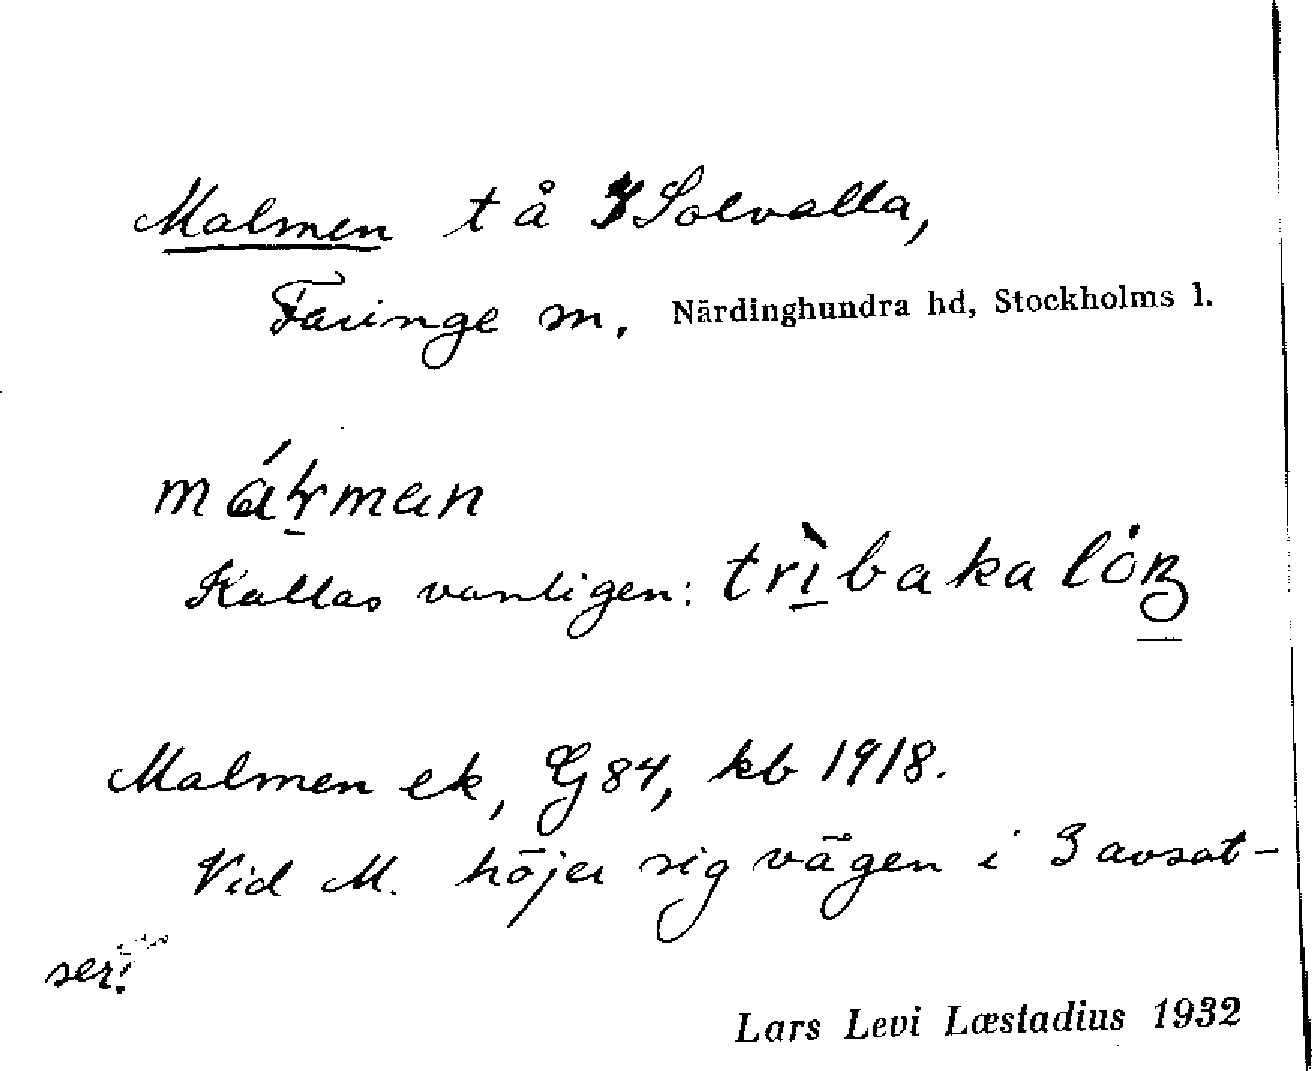 Malmen t å Solvalla,
Faringe sn, Närdinghundra hd, Stockholms l.
Kallas vanligen: trìbakalȯ
Malmen ek, G 84, kb 1918.
Vid M. höjer sig vägen i 3 avsat-
ser!
Lars Levi Læstadius 1932